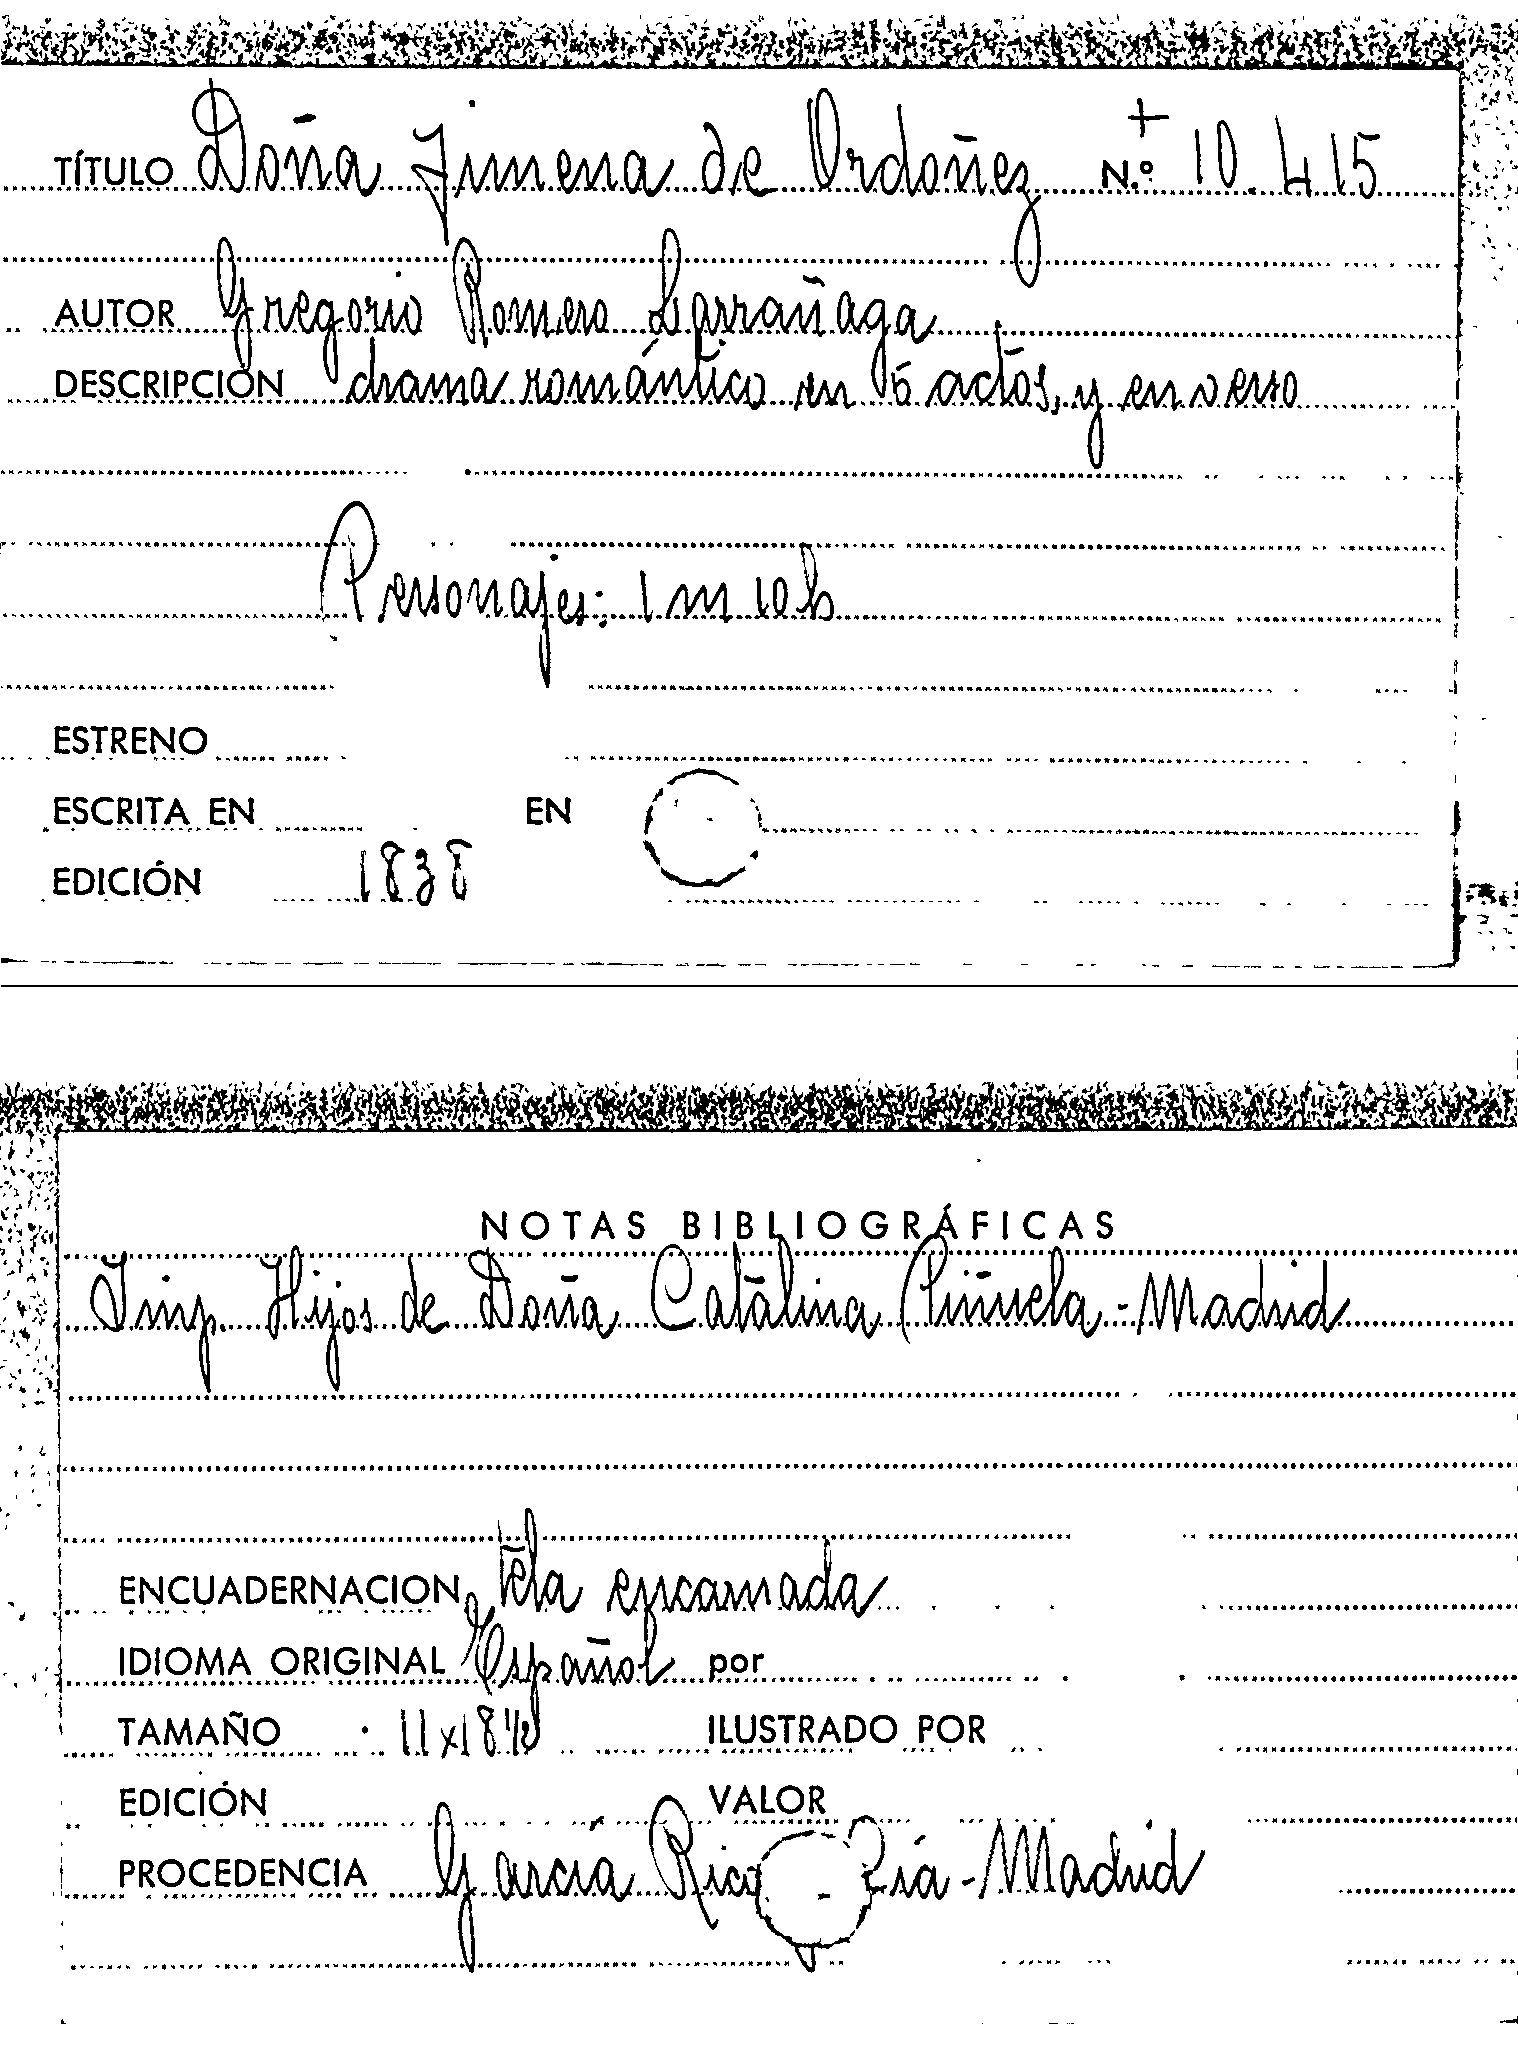 TÍTULO Doña Jimena de Ordoñez N.º 10.415
+
AUTOR Gregorio Romero Larrañaga
DESCRIPCIÓN drama romántico en 5 actos, y en verso
Personajes: 1 m 10 h
ESTRENO
ESCRITA EN EN
EDICIÓN 1838
NOTAS BIBLIOGRÁFICAS
Imp. Hijos de Doña Catalina Piñuela - Madrid
ENCUADERNACION tela encarnada
IDIOMA ORIGINAL Español por
TAMAÑO 11x18 1/2 ILUSTRADO POR
EDICIÓN VALOR
PROCEDENCIA García Rico Cía - Madrid